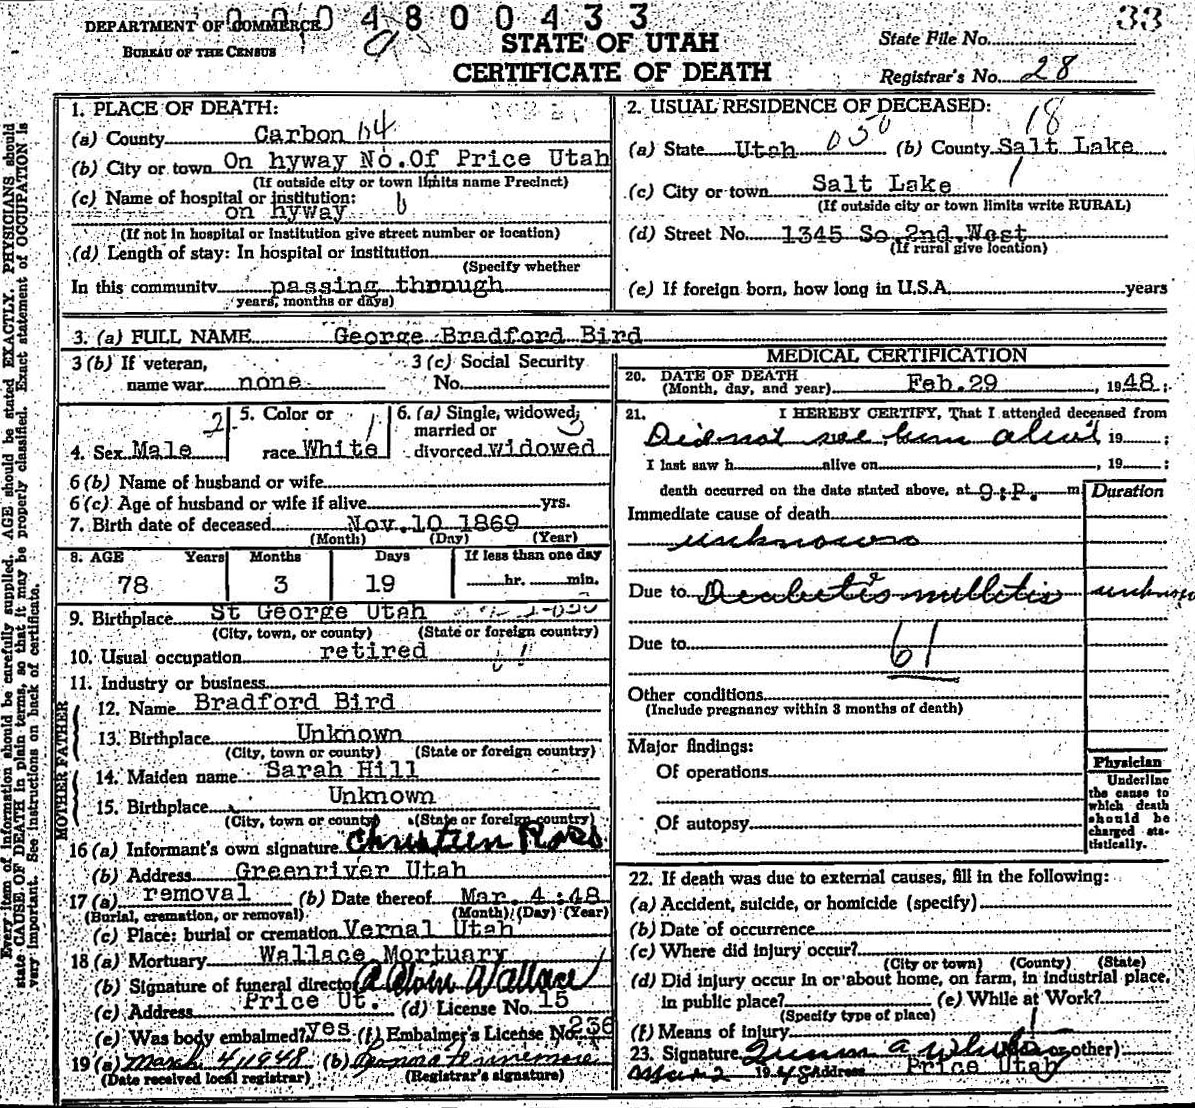 004800433
33
DEPARTMENT OF COMMERCE
BUREAU OF THE CENSUS
STATE OF UTAH
CERTIFICATE OF DEATH
State File No.
Registrar's No. 28
Every item of information should be carefully supplied. AGE should be stated EXACTLY. PHYSICIANS should
state CAUSE OF DEATH in plain terms, so that it may be properly classified. Exact statement of OCCUPATION is
very important. See instructions on back of certificate.
1. PLACE OF DEATH:
(a) County Carbon 04
(b) City or town On hyway No.Of Price Utah
(If outside city or town limits name Precinct)
(c) Name of hospital or institution:
on hyway
(If not in hospital or institution give street number or location)
(d) Length of stay: In hospital or institution
(Specify whether
In this community passing through
years, months or days)
2. USUAL RESIDENCE OF DECEASED:
18
(a) State Utah 050 (b) County Salt Lake
(c) City or town Salt Lake
(If outside city or town limits write RURAL)
(d) Street No. 1345 So 2nd.West
(If rural give location)
(e) If foreign born, how long in U.S.A. years
3. (a) FULL NAME George Bradford Bird
3 (b) If veteran,
name war none
3 (c) Social Security
No.
4. Sex Male 2
5. Color or
race White 1
6. (a) Single, widowed, 3
married or
divorced widowed
6 (b) Name of husband or wife
6 (c) Age of husband or wife if alive yrs.
7. Birth date of deceased Nov.10 1869
(Month) (Day) (Year)
8. AGE Years Months Days If less than one day
78 3 19 hr. min.
9. Birthplace St George Utah
(City, town, or county) (State or foreign country)
10. Usual occupation retired
11. Industry or business
FATHER
12. Name Bradford Bird
13. Birthplace Unknown
(City, town or county) (State or foreign country)
MOTHER
14. Maiden name Sarah Hill
15. Birthplace Unknown
(City, town or county) (State or foreign country)
16 (a) Informant's own signature Christien Ross
(b) Address Greenriver Utah
17 (a) removal (b) Date thereof Mar. 4 :48
(Burial, cremation, or removal) (Month) (Day) (Year)
(c) Place: burial or cremation Vernal Utah
18 (a) Mortuary Wallace Mortuary
(b) Signature of funeral director Wallace
(c) Address Price Ut. (d) License No. 15
(e) Was body embalmed? yes (f) Embalmer's License No. 236
19 (a) March 4, 1948 (b)
(Date received local registrar) (Registrar's signature)
MEDICAL CERTIFICATION
20. DATE OF DEATH
(Month, day, and year) Feb.29, 1948;
21. I HEREBY CERTIFY, That I attended deceased from
Did not see him alive, 19 ;
I last saw h alive on , 19 ;
death occurred on the date stated above, at 9:P. m
Duration
Immediate cause of death
unknown
Due to Diabetis millitis
Due to
61
Other conditions
(Include pregnancy within 3 months of death)
Major findings:
Of operations
Of autopsy
Physician
Underline
the cause to
which death
should be
charged sta-
tistically.
22. If death was due to external causes, fill in the following:
(a) Accident, suicide, or homicide (specify)
(b) Date of occurrence
(c) Where did injury occur?
(City or town) (County) (State)
(d) Did injury occur in or about home, on farm, in industrial place,
in public place? (e) While at Work?
(Specify type of place)
(f) Means of injury
23. Signature or other)
Mar 2 1948 Address Price Utah